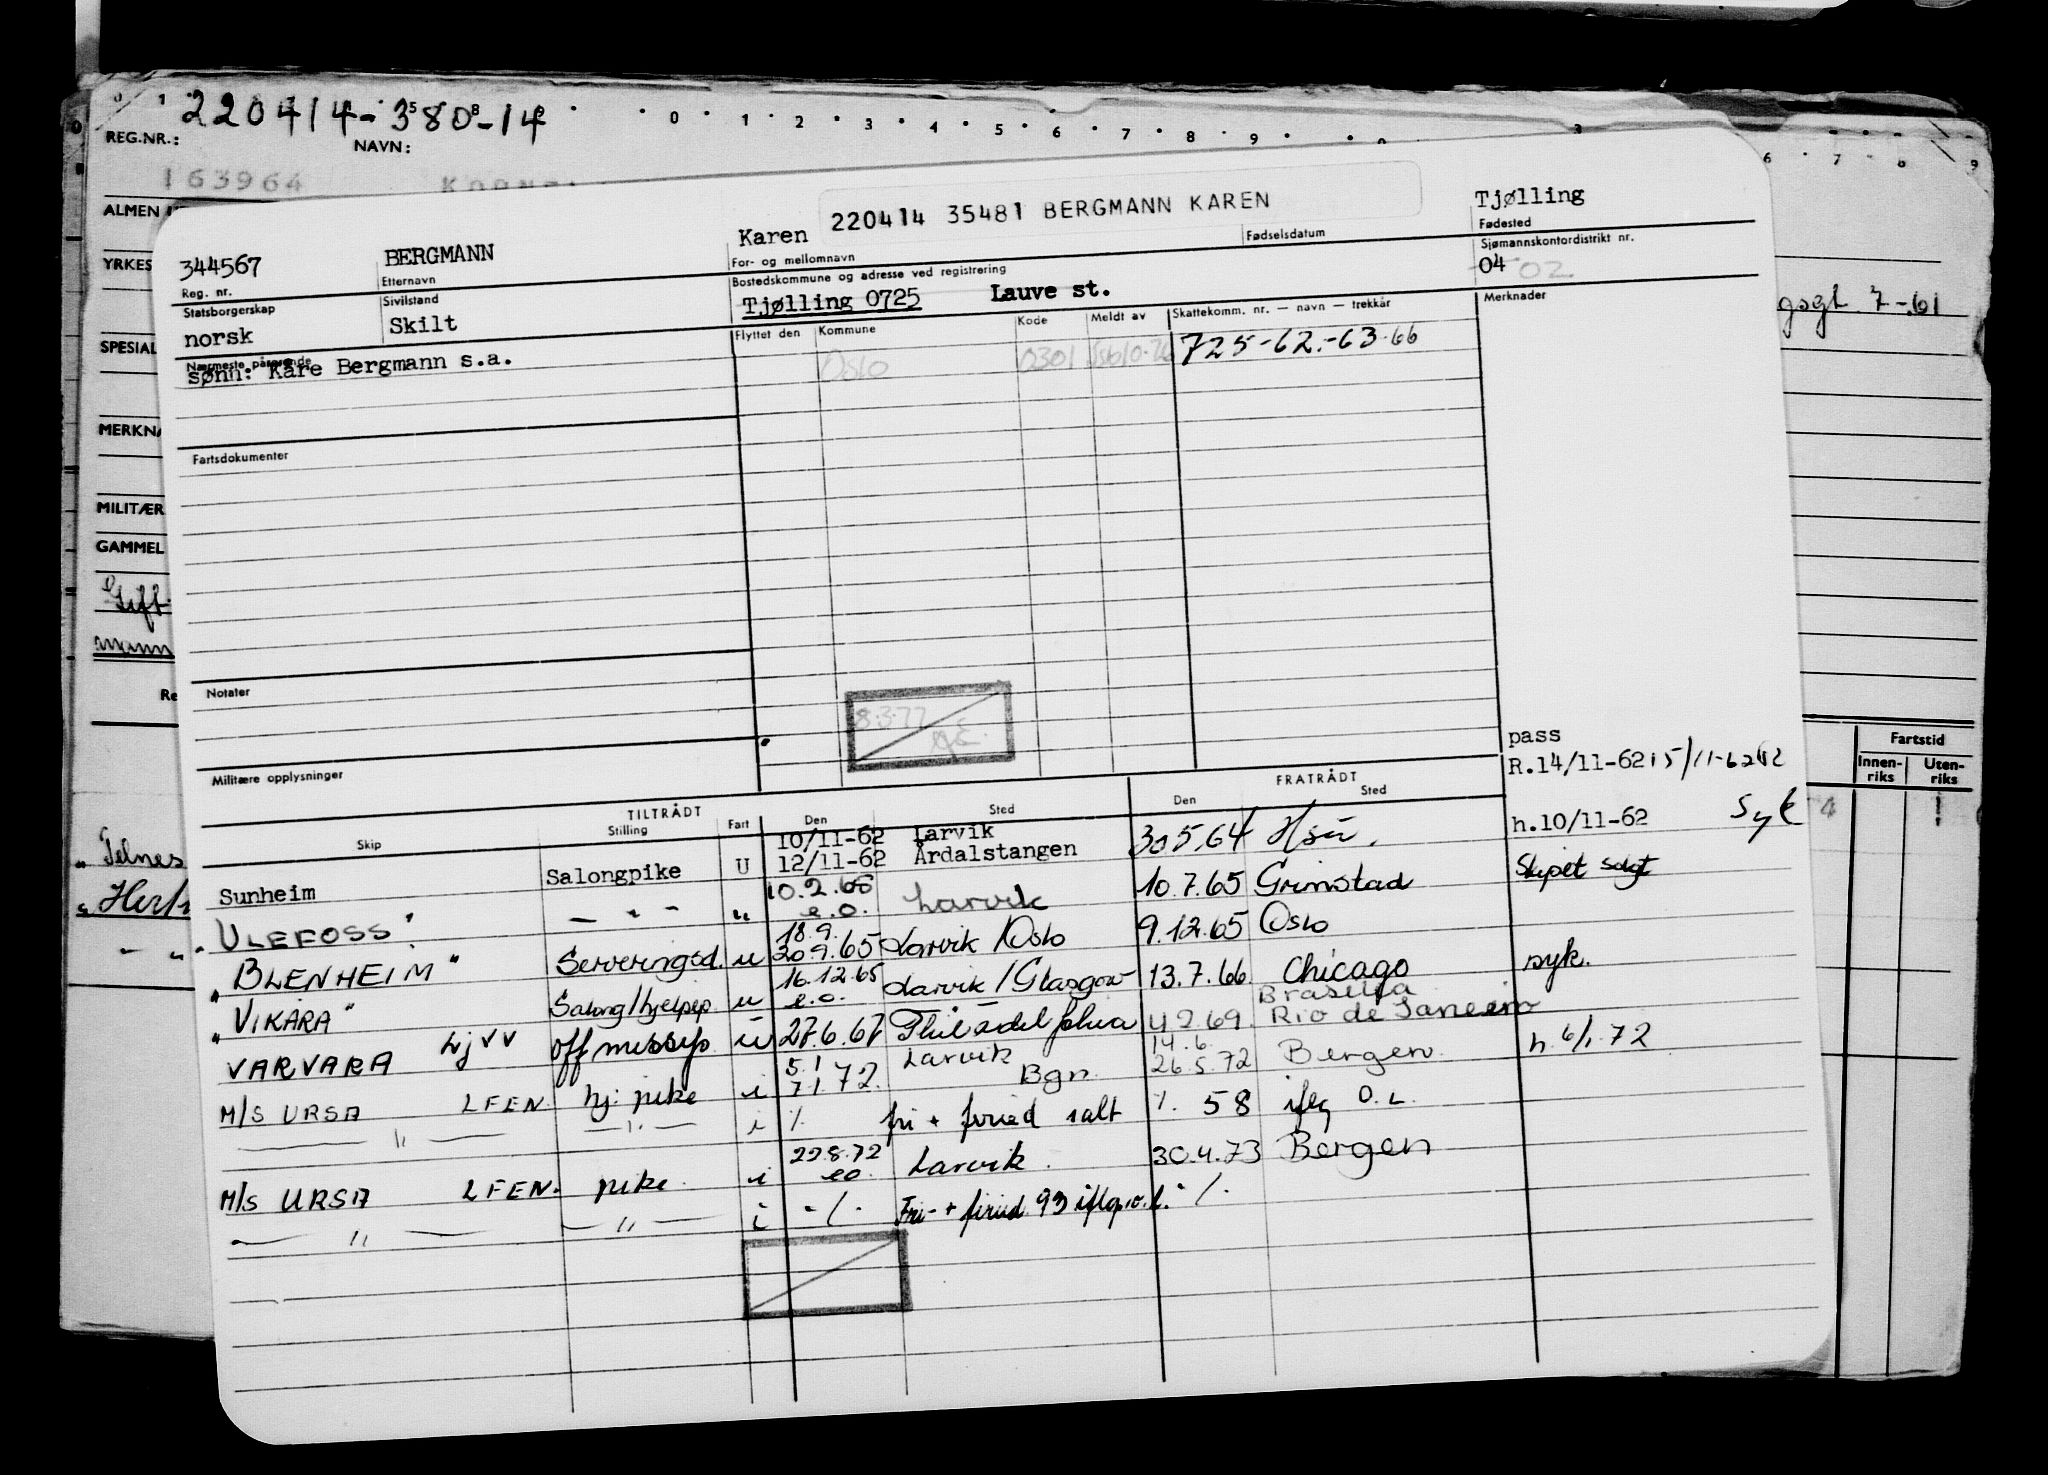 220414-380-14
REG.NR.:
NAVN:
0 1 2 3 4 5 6 7 8 9
163964
ALMEN
YRKES
SPESIAL
MERKNA
MILITÆR
GAMMEL
Gift
mann
7-61
Fartstid
Innen-riks Uten-riks
220414 35481 BERGMANN KAREN
Tjølling
344567 BERGMANN Karen
Reg. nr. Etternavn For- og mellomnavn Fødselsdatum Fødested
Statsborgerskap Sivilstand Bostedskommune og adresse ved registrering Sjømannskontordistrikt nr.
norsk Skilt Tjølling 0725 Lauve st. 04 02
Nærmeste pårørende Flyttet den Kommune Kode Meldt av Skattekomm. nr. — navn — trekkår Merknader
sønn: Kåre Bergmann s.a. Oslo 0301 725-62-63-66
Fartsdokumenter
Notater
8.3.77
Militære opplysninger
pass
R.14/11-62 15/11-62
TILTRÅDT FRATRÅDT
Skip Stilling Fart Den Sted Den Sted
10/11-62 Larvik
Sunheim Salongpike U 12/11-62 Årdalstangen 30.5.64 h.10/11-62 Syk
"ULEFOSS" — " — " 10.2.65 e.o. Larvik 10.7.65 Grimstad Skipet solgt
"BLENHEIM" Serveringsd. u 18.9. 20.9.65 Larvik/Oslo 9.12.65 Oslo
"VIKARA" Salong/hjelpep u 16.12.65 e.o. Larvik/Glasgow 13.7.66 Chicago syk.
VARVARA LJVV off messep u 27.6.67 Philadelphia 4.2.69 Rio de Janeiro
M/S URSA LFEN hj: pike i 5.1 7.1.72. Larvik Bgn. 14.6. 26.5.72 Bergen h. 6/1.72
— " — — " — i %. fri + feried salt %. 58 iflg O.L.
M/S URSA LFEN. pike i 22.8.72 eo. Larvik. 30.4.73 Bergen
— " — — " — i -/- Fri- + feried. 93 iflg.o.l. -/-